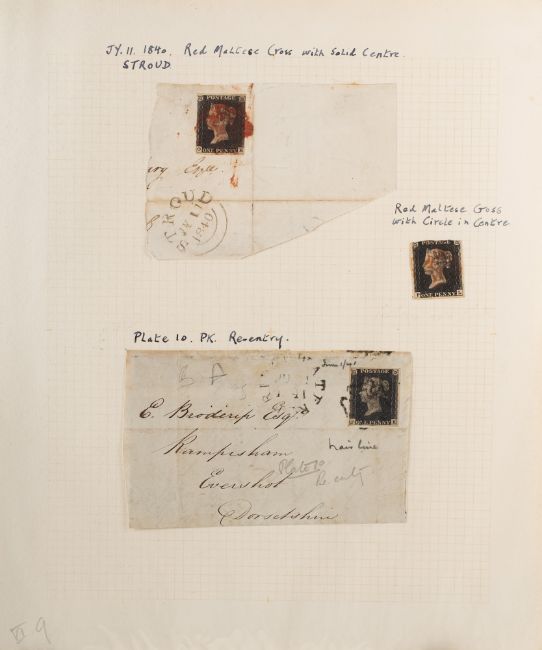 JY. 11. 1840. Red Maltese Cross with Solid Centre.
STROUD
POSTAGE
ONE PENNY
STROUD
JY 11
1840
Red Maltese Cross
with Circle in Centre
POSTAGE
ONE PENNY
Plate 10. PK. Re-entry.
POSTAGE
ONE PENNY
E. Broderip Esqr
Rampisham
hair line
Plate 10
Evershot
Dorsetshire